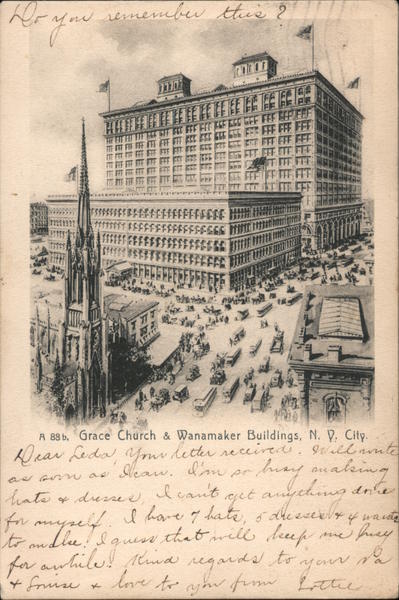 Do you remember this?
A 88b. Grace Church & Wanamaker Buildings, N. Y. City.
Dear Leda, Your letter received. Will write
as soon as I can. I'm so busy making
hats & dresses, I can't get anything done
for myself. I have 7 hats, 5 dresses & 4 waists
to make. I guess that will keep me busy
for awhile. Kind regards to your Pa
& Louise & love to you from Lottie